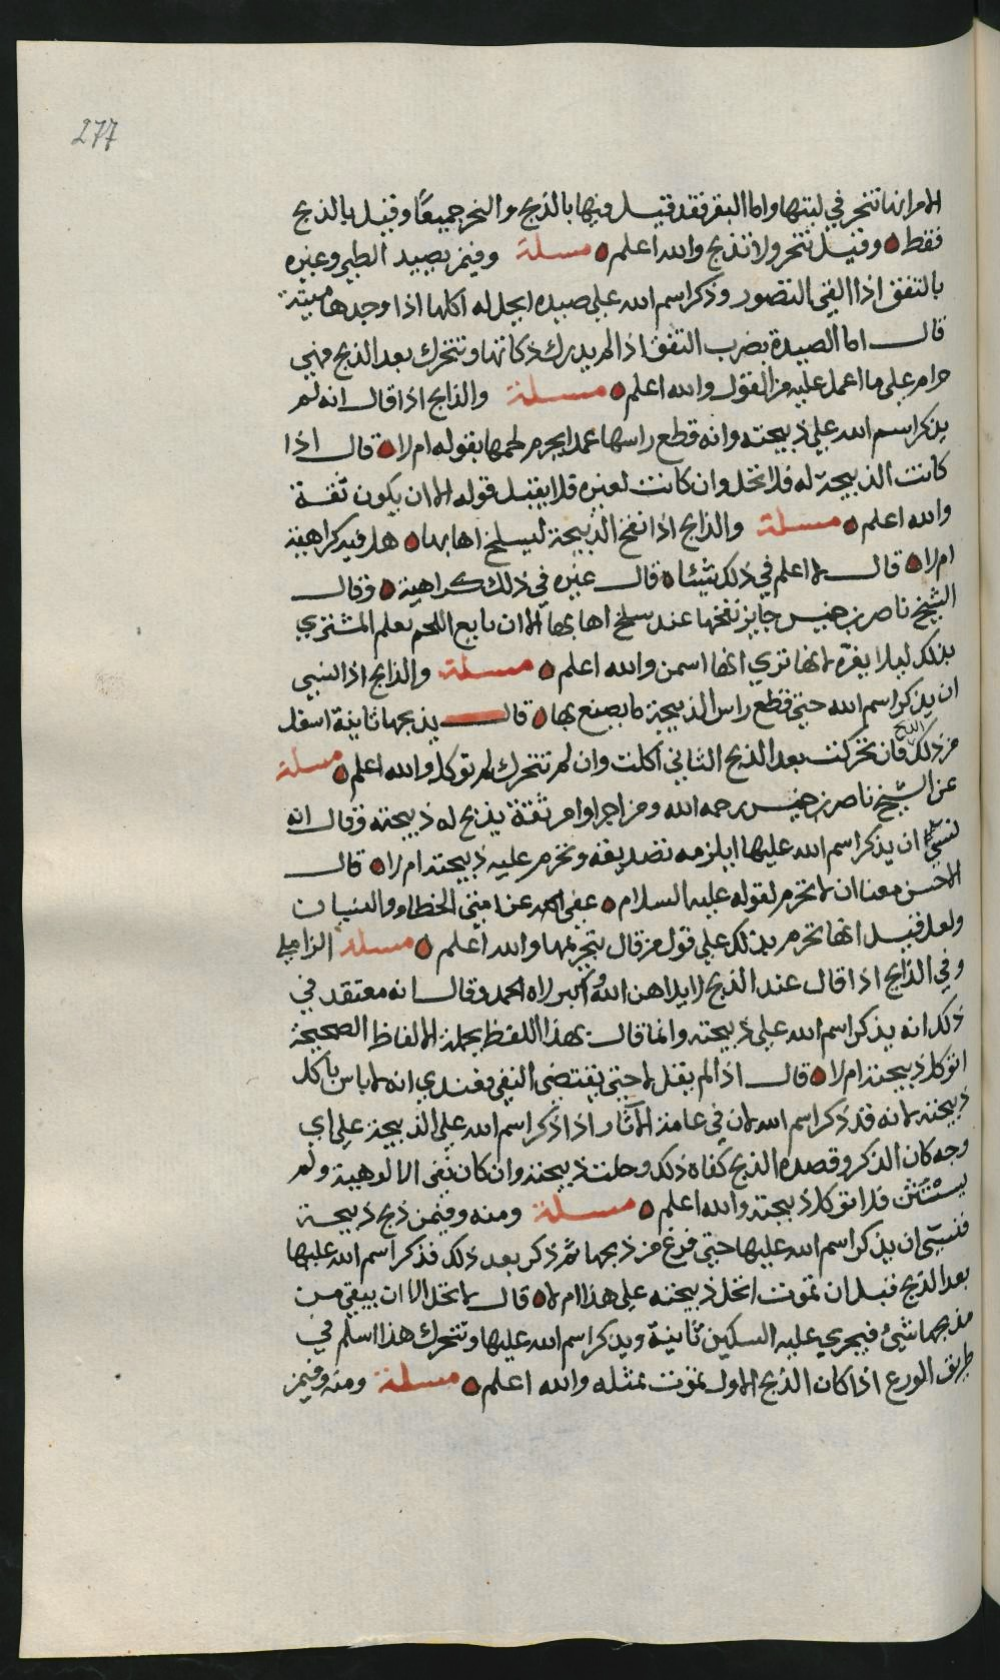 277
الامر انها تنحر في لبتها واما البقر فقد قيل فيها بالذبح والنحر جميعًا وقيل بالذبح
فقط وقيل تنحر ولا تذبح والله اعلم مسلة وفيمن يصيد الطير وغيره
بالتفق اذا القى التصور وذكر اسم الله على صيده ايحل له اكلها اذا وجدها ميتة
قال اما الصيدة بضرب التفق اذا لم يدرك ذكاتها وتتحرك بعد الذبح فهي
حرام على ما اعمل عليه من القول والله اعلم مسلة والذابح اذا قال انه لم
يذكر اسم الله على ذبيحته وانه قطع راسها عمدا يحرم لحمها بقوله ام لا قال اذا
كانت الذبيحة له فلا تحل وان كانت لغيره فلا يقبل قوله الا ان يكون ثقة
والله اعلم مسلة والذابح اذا نفخ الذبيحة ليسلخ اهابها هل فيه كراهية
ام لا قال لا اعلم في ذلك شيئا قال غيره في ذلك كراهية وقال
الشيخ ناصر بن خميس جايز نفخها عند سلخ اهابها الا ان بايع اللحم يعلم المشتري
بذلك ليلا يغره لانها تري انها اسمن والله اعلم مسلة والذابح اذا نسي
ان يذكر اسم الله حتى قطع راس الذبيحة ما يصنع بها قال يذبحها ثانية اسفل
من ذلك الذبح فان تحركت بعد الذبح الثاني اكلت وان لم تتحرك لم توكل والله اعلم مسلة
عن الشيخ ناصر بن خميس رحمه الله ومن اجر او امر ثقة يذبح له ذبيحته وقال انه
نسي ان يذكر اسم الله عليها ايلزمه تصديقه وتحرم عليه ذبيحته ام لا قال
الاحسن معنا ان لا تحرم لقوله عليه السلام عفى الله عن امتي الخطاء والنسيان
ولعل قيل انها تحرم بذلك على قول من قال بتحريمها والله اعلم مسلة الزاملي
وفي الذابح اذا قال عند الذبح لا يلاهن الله واكبر لاه الحمد وقال انه معتقد في
ذلك انه يذكر اسم الله على ذبيحته وانما قال بهذا اللفظ بجملة الالفاظ الصحيحة
اتوكل ذبيحته ام لا قال اذا لم يقل لا حتى يقتضى النفي فعندي انه لا باس باكل
ذبيحته لانه قد ذكر اسم الله لان في عامة الآثار اذا ذكر اسم الله على الذبيحة على اي
وجه كان الذكر وقصده الذبح كفاه ذلك وحلت ذبيحته وان كان نفى الالوهية ولم
يستثن فلا توكل ذبيحته والله اعلم مسلة ومنه وفيمن ذبح ذبيحة
فنسي ان يذكر اسم الله عليها حتى فرغ من ذبحها ثم ذكر بعد ذلك فذكر اسم الله عليها
بعد الذبح قبل ان تموت اتحل ذبيحته على هذا ام لا قال لا تحل الا ان يبقى من
مذبحها شيء فيجري عليه السكين ثانية ويذكر اسم الله عليها وتتحرك هذا اسلم في
طريق الورع اذا كان الذبح الاول تموت بمثله والله اعلم مسلة ومنه وفيمن